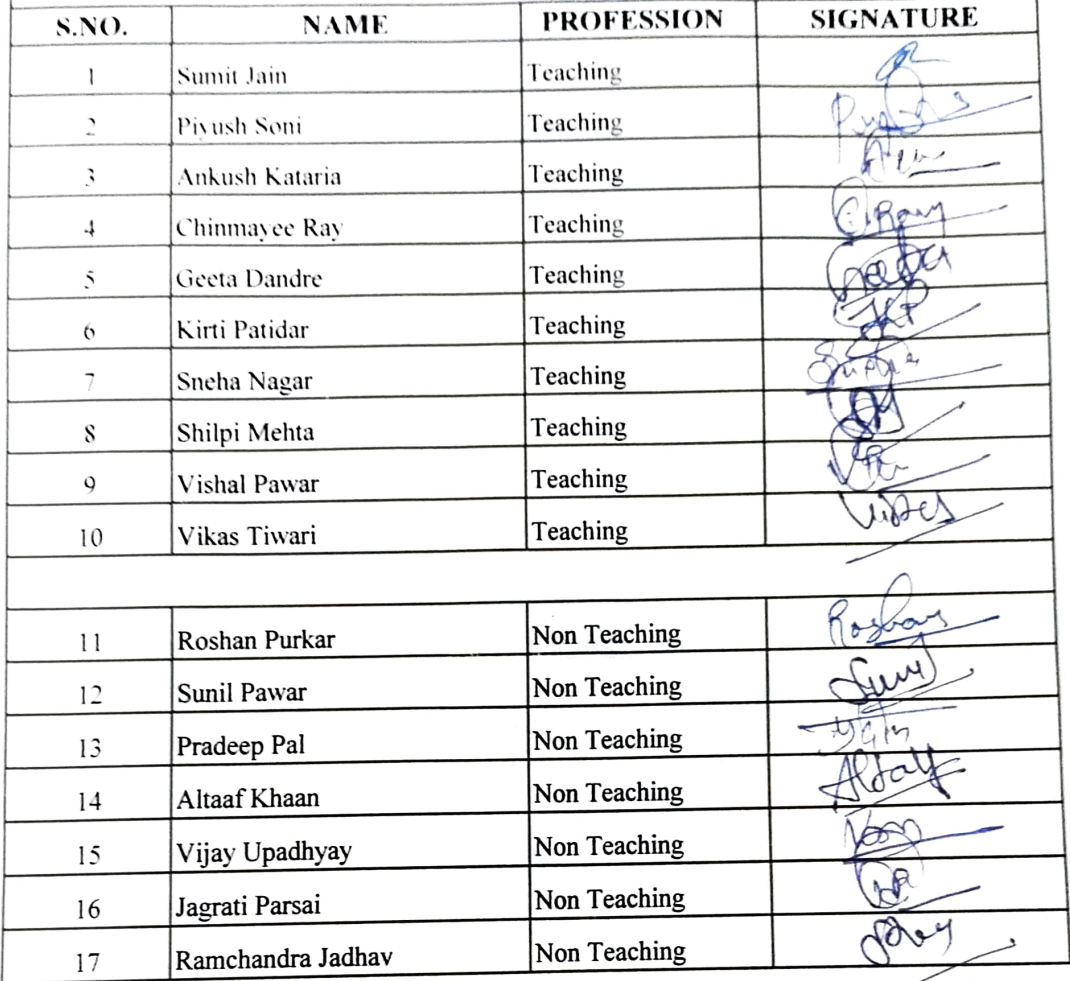 S.NO. NAME PROFESSION SIGNATURE
1 Sumit Jain Teaching
2 Piyush Soni Teaching
3 Ankush Kataria Teaching
4 Chinmayee Ray Teaching C. Ray
5 Geeta Dandre Teaching Geeta
6 Kirti Patidar Teaching
7 Sneha Nagar Teaching
8 Shilpi Mehta Teaching
9 Vishal Pawar Teaching
10 Vikas Tiwari Teaching
11 Roshan Purkar Non Teaching Roshan
12 Sunil Pawar Non Teaching
13 Pradeep Pal Non Teaching
14 Altaaf Khaan Non Teaching Altaf
15 Vijay Upadhyay Non Teaching
16 Jagrati Parsai Non Teaching
17 Ramchandra Jadhav Non Teaching